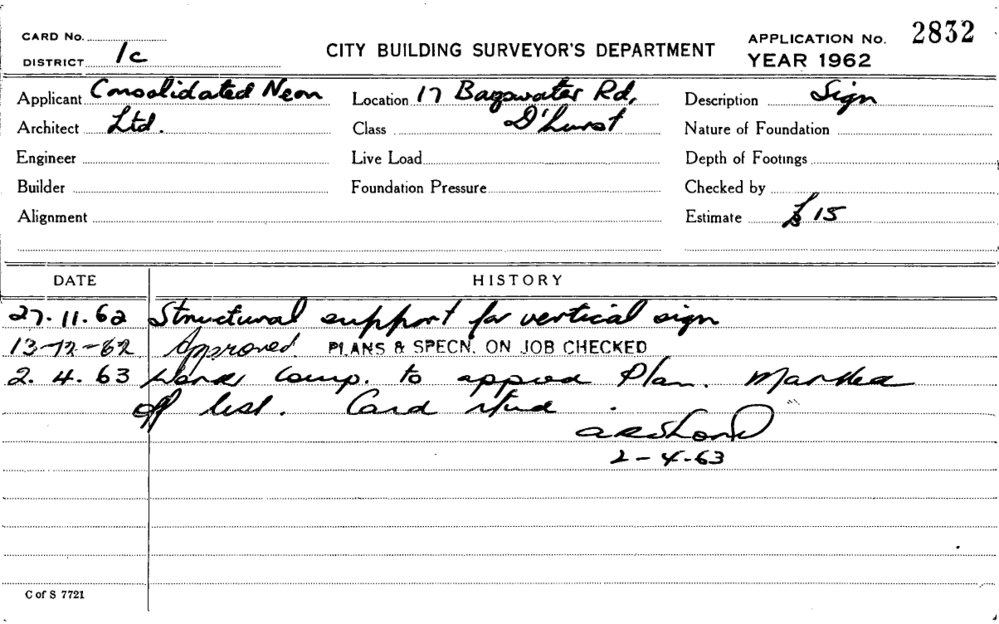 CARD No.
DISTRICT 1c
CITY BUILDING SURVEYOR'S DEPARTMENT
APPLICATION No. 2832
YEAR 1962
Applicant Consolidated Neon Location 17 Bayswater Rd, Description Sign
Architect Ltd. Class D'hurst Nature of Foundation
Engineer Live Load Depth of Footings
Builder Foundation Pressure Checked by
Alignment Estimate £15
DATE HISTORY
27.11.62 Structural support for vertical sign
13-12-62 Approved. PLANS & SPECN. ON JOB CHECKED
2.4.63 Works comp. to appvd Plan. Marked
off list. Card
2-4-63
C of S 7721